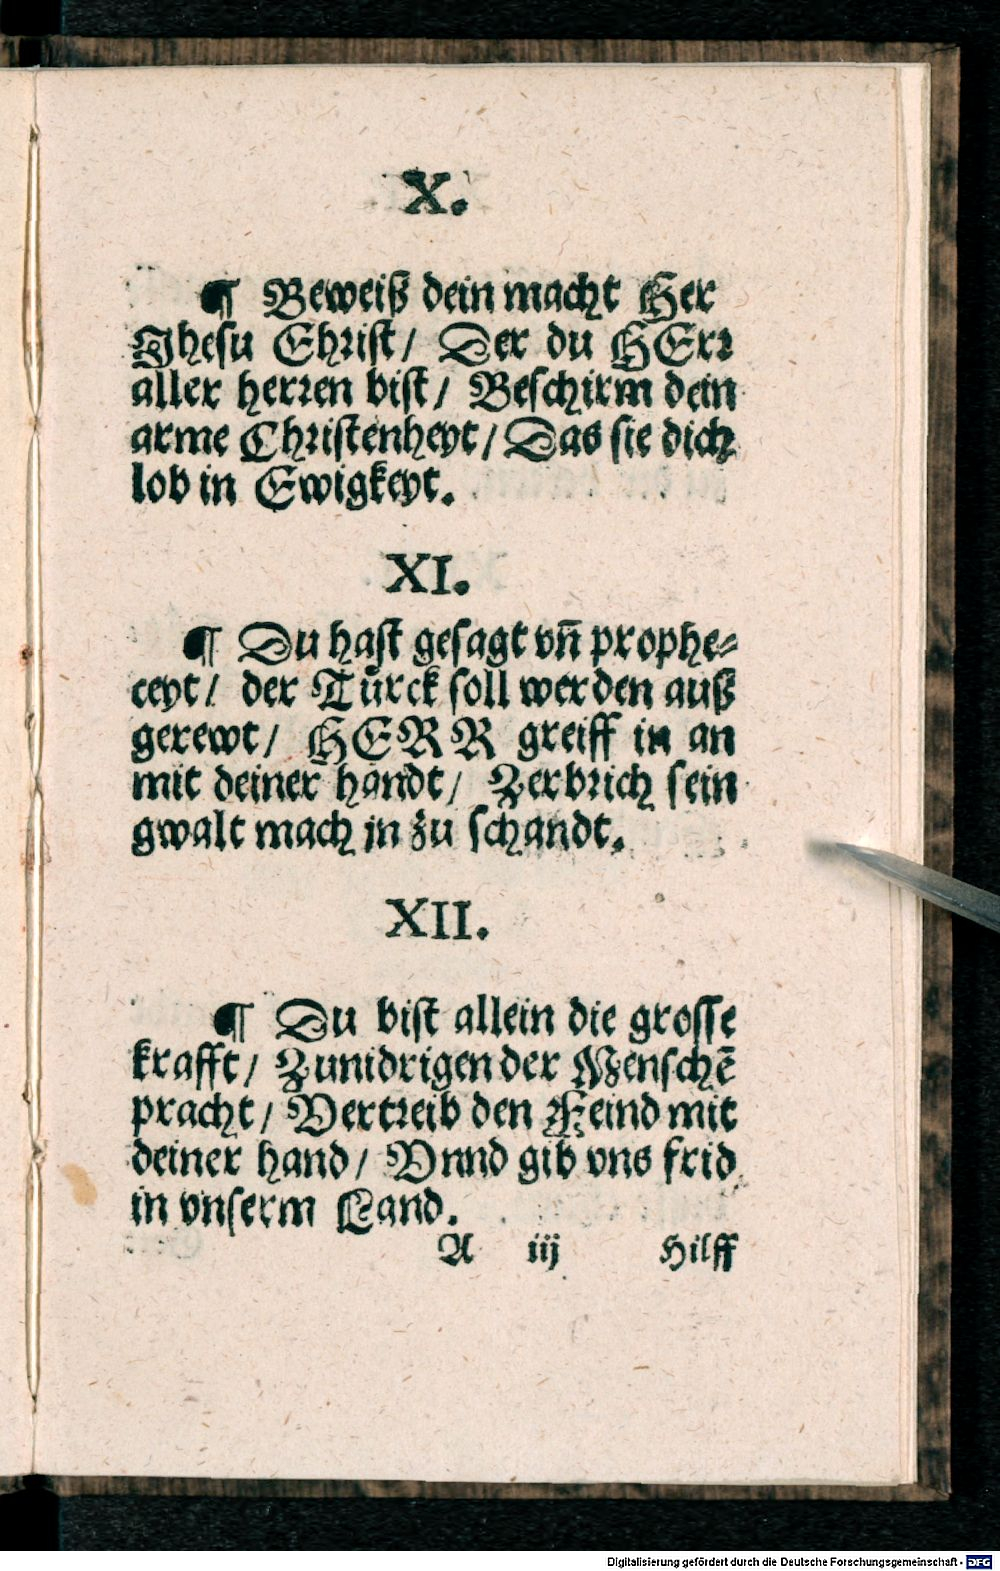 X.
¶ Beweiß dein macht Her
Jhesu Christ/ Der du HErr
aller herren bist/ Beschirm dein
arme Christenheyt/ Das sie dich
lob in Ewigkeyt.
XI.
¶ Du hast gesagt vn̄ prophe-
ceyt/ der Tuͤrck soll werden auß
gerewt/ HERR greiff in an
mit deiner handt/ Zerbrich sein
gwalt mach jn zu schandt.
XII.
¶ Du bist allein die grosse
krafft/ Zunidrigen der Menschē
pracht/ Vertreib den Feind mit
deiner hand/ Vnnd gib vns frid
in vnserm Land.
A iij Hilff
Digitalisierung gefördert durch die Deutsche Forschungsgemeinschaft - DFG